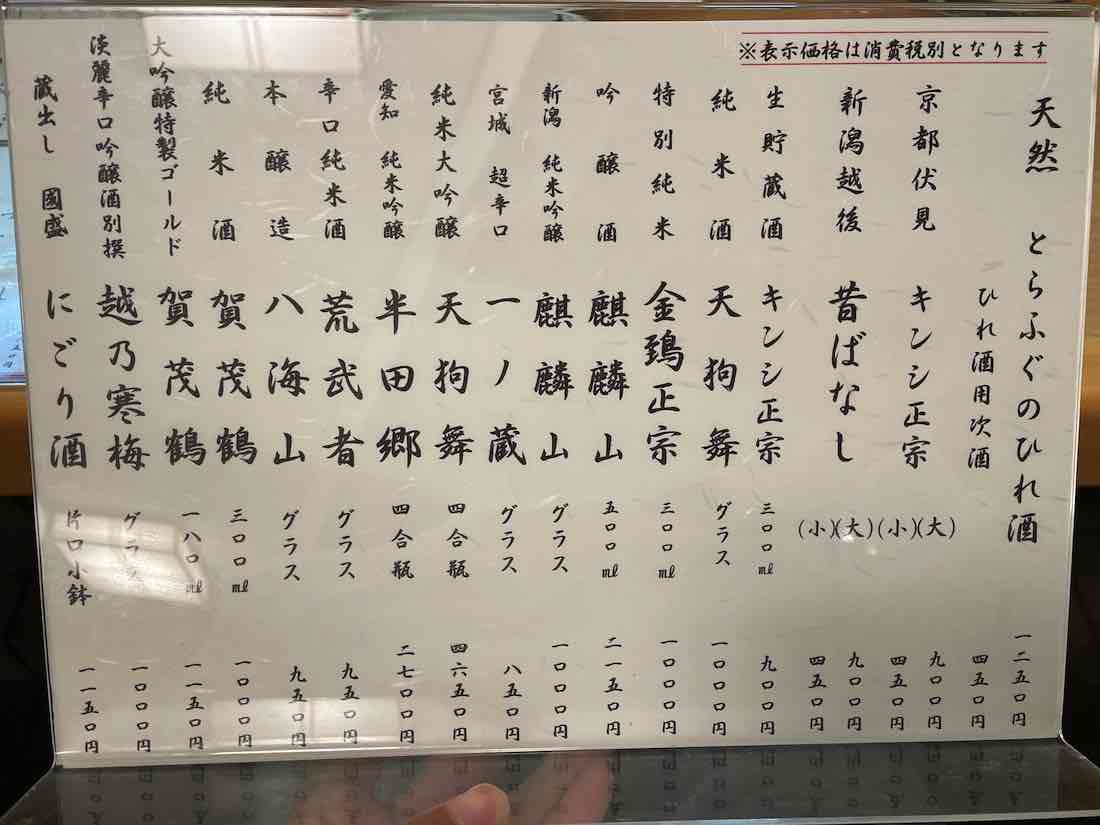 ※表示価格は消費税別となります
天然 とらふぐのひれ酒 一二五〇円
ひれ酒用次酒 四五〇円
京都伏見 キンシ正宗 (大) 九〇〇円
(小) 四五〇円
新潟越後 昔ばなし (大) 九〇〇円
(小) 四五〇円
生貯蔵酒 キンシ正宗 三〇〇㎖ 九〇〇円
純米酒 天狗舞 グラス 一〇〇〇円
特別純米 金鵄正宗 三〇〇㎖ 一〇〇〇円
吟醸酒 麒麟山 五〇〇㎖ 二一五〇円
新潟 純米吟醸 麒麟山 グラス 一〇〇〇円
宮城 超辛口 一ノ蔵 グラス 八五〇円
純米大吟醸 天狗舞 四合瓶 四六五〇円
愛知 純米吟醸 半田郷 四合瓶 二七〇〇円
辛口純米酒 荒武者 グラス 九五〇円
本醸造 八海山 グラス 九五〇円
純米酒 賀茂鶴 三〇〇㎖ 一〇〇〇円
大吟醸特製ゴールド 賀茂鶴 一八〇㎖ 一一五〇円
淡麗辛口吟醸酒別撰 越乃寒梅 グラス 一〇〇〇円
蔵出し 國盛 にごり酒 片口小鉢 一一五〇円